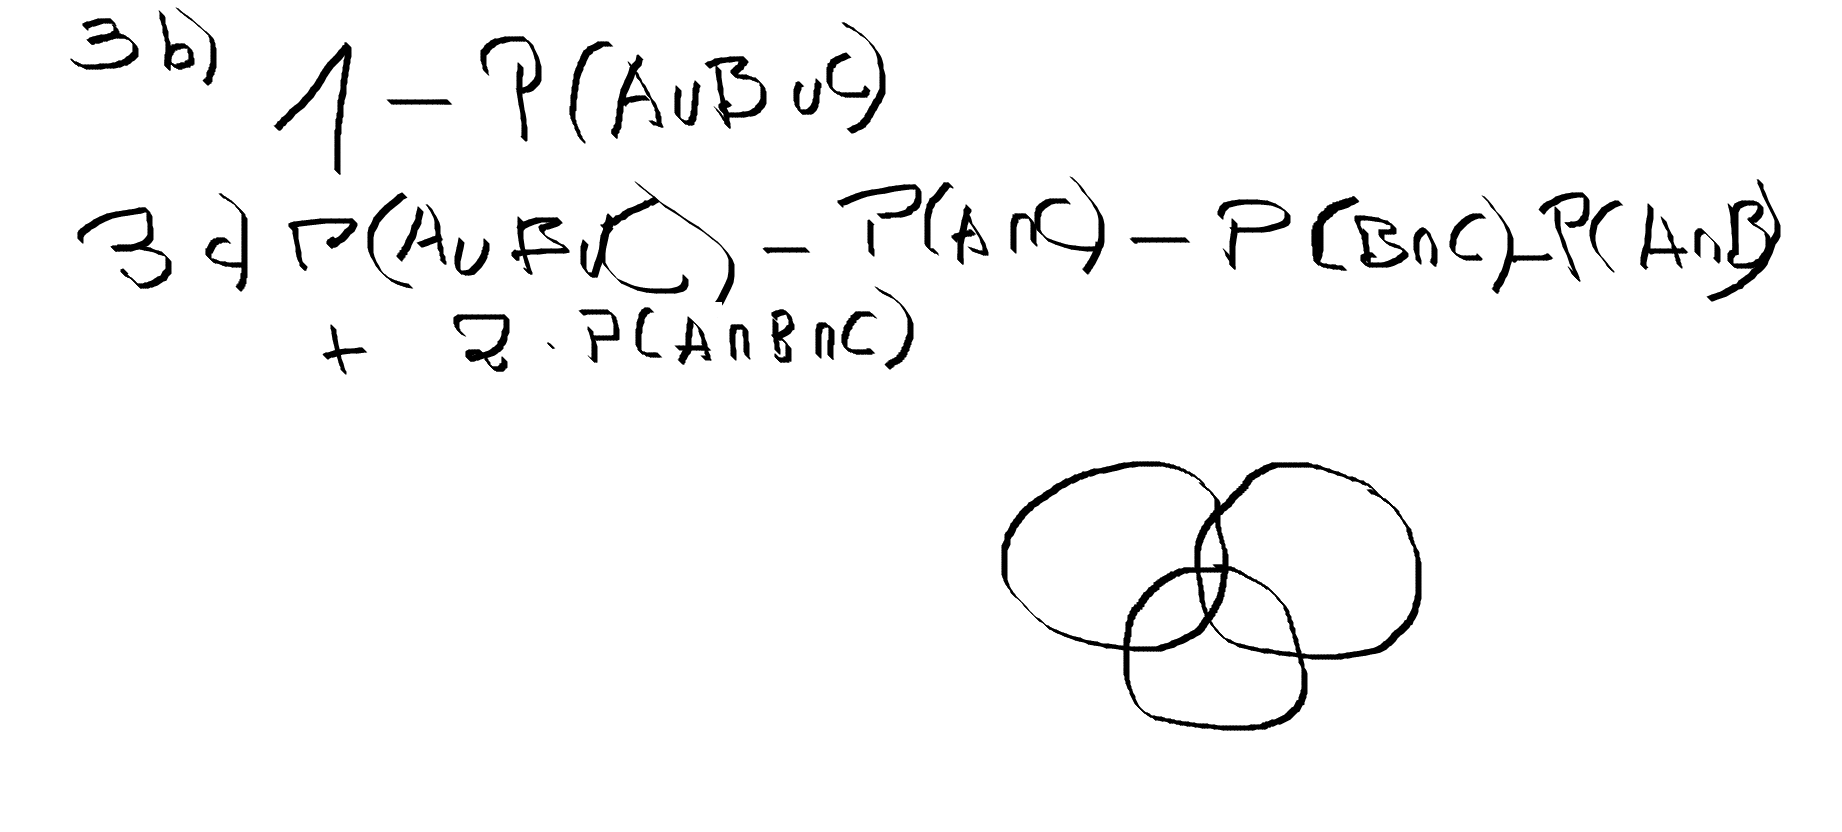 3b) 1 - P(A∪B∪C)
3c) P(A∪B∪C) - P(A∩C) - P(B∩C) - P(A∩B)
+ 2 · P(A∩B∩C)